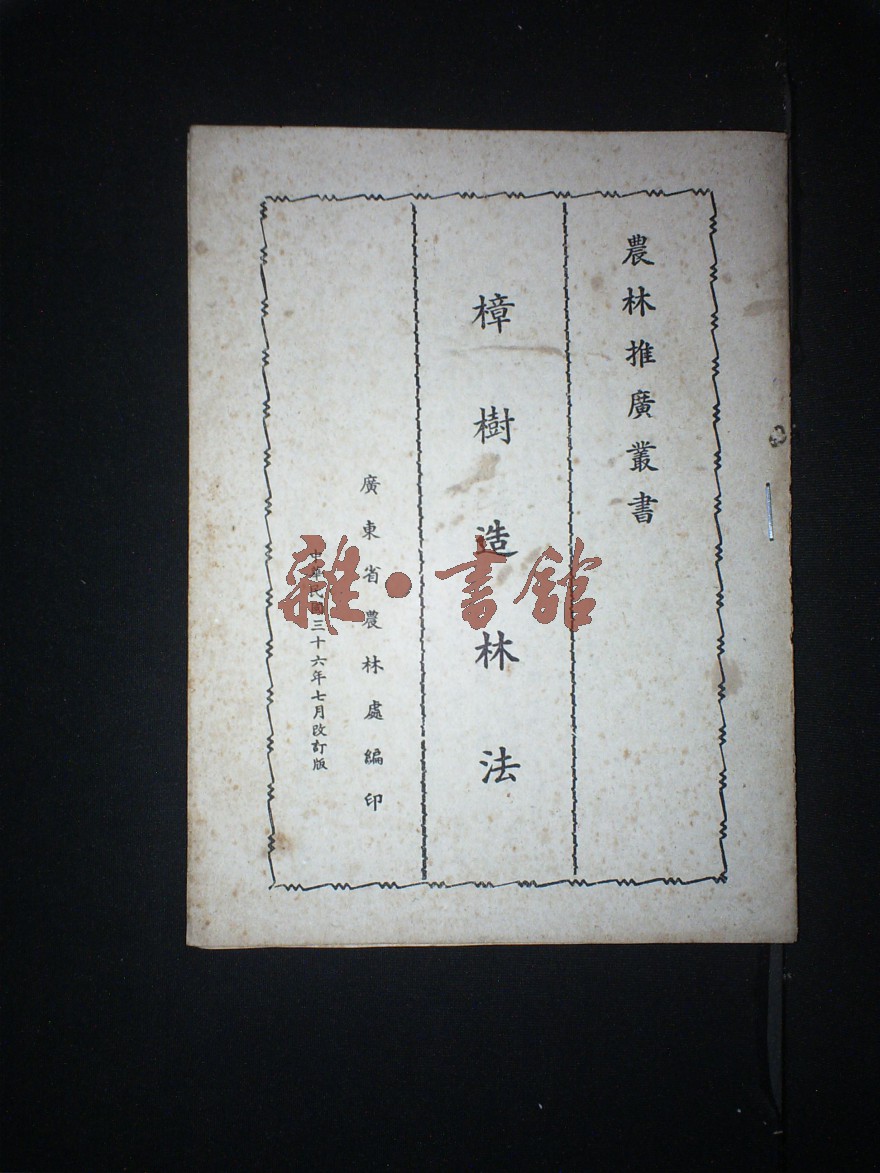 農林推廣叢書
樟樹造林法
廣東省農林處編印
中華民國三十六年七月改訂版
雜·書館